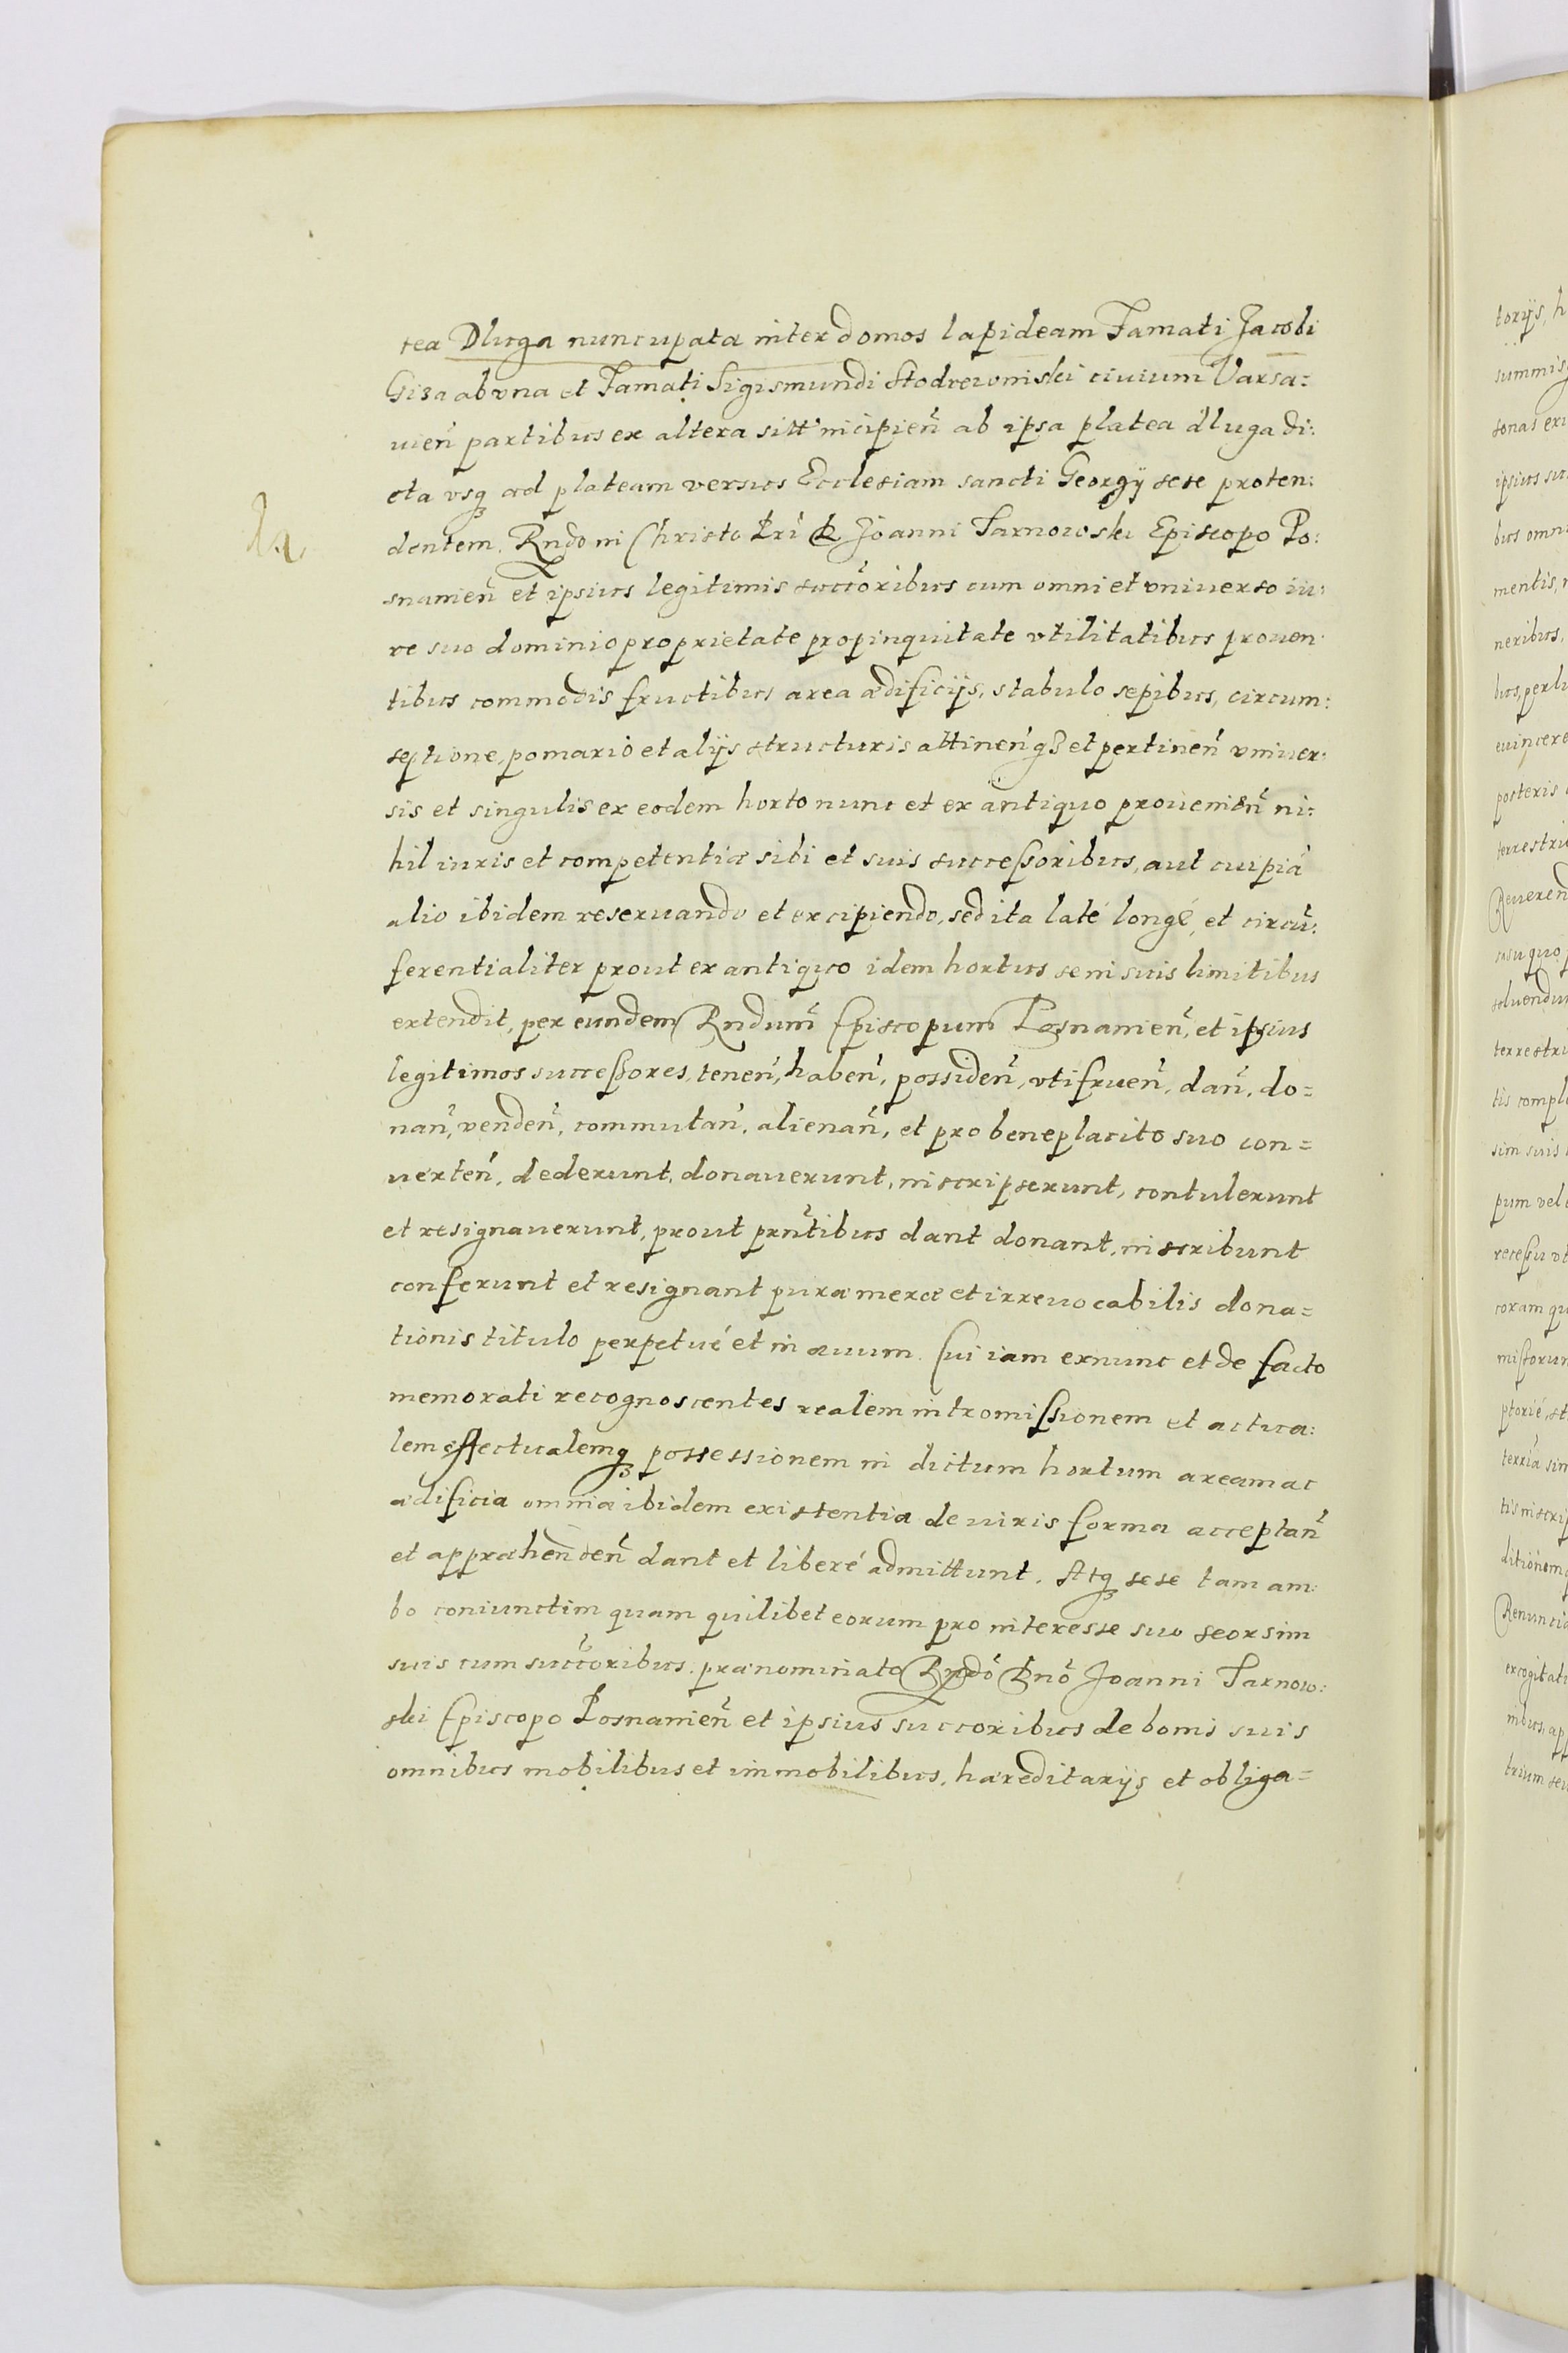 tea Dluga nuncupata inter domos lapideam Famati Jacobi
Giza ab vna et Famati Sigismundi Stodrewniski ciuium Varsa:
uien̄ partibus ex altera sitt' incipien̄ ab ipsa platea dluga di:
cta vsq₃ ad plateam versus Ecclesiam sancti Georgÿ sese proten:
dentem, Rndo in Christo Pri D Joanni Tarnowski Episcopo Po:
snanien̄ et ipsius legitimis succoribus cum omni et vniuerso iu:
re suo dominio proprietate propinquitate vtilitatibus prouen:
tibus commodis fructibus area ædificijs, stabulo sepibus, circum:
septione, pomario et alijs structuris attinen̄q₃ et pertinen̄ vniuer:
sis et singulis ex eodem horto nunc et ex antiquo prouenien̄ ni:
hil iuris et competentiæ sibi et suis successoribus, aut cuipiā
alio ibidem reseruando et excipiendo, sed ita laté longé, et circū:
ferentialiter prout ex antiquo idem hortus se in suis limitibus
extendit, per eundem Rndum Episcopum Posnanien̄, et ipsius
legitimos successores, tenen̄, haben̄, possiden̄, vtifruen̄, dan̄, do=
nan̄, venden̄, commutan̄, alienan̄, et pro beneplacito suo con=
uerten̄, dederunt, donauerunt, inscripserunt, contulerunt
et resignauerunt, prout prn̄tibus dant donant, inscribunt
conferunt et resignant puræ meræ et irreuocabilis dona=
tionis titulo perpetué et in æuum. Cui iam exnunc et de facto
memorati recognoscentes realem intromissionem et actua:
lem effectualemq₃ possessionem in dictum hortum aream ac
ædificia omnia ibidem existentia de iuris forma acceptan̄
et appræhenden̄ dant et liberé admittunt. Atq₃ sese tam am:
bo coniunctim quam quilibet eorum pro interesse suo seorsim
suis cum succoribus. prænominato Rndo Dno Joanni Tarnow:
ski Episcopo Posnanien̄ et ipsius succoribus de bonis suis
omnibus mobilibus et immobilibus, hæreditarijs et obliga=